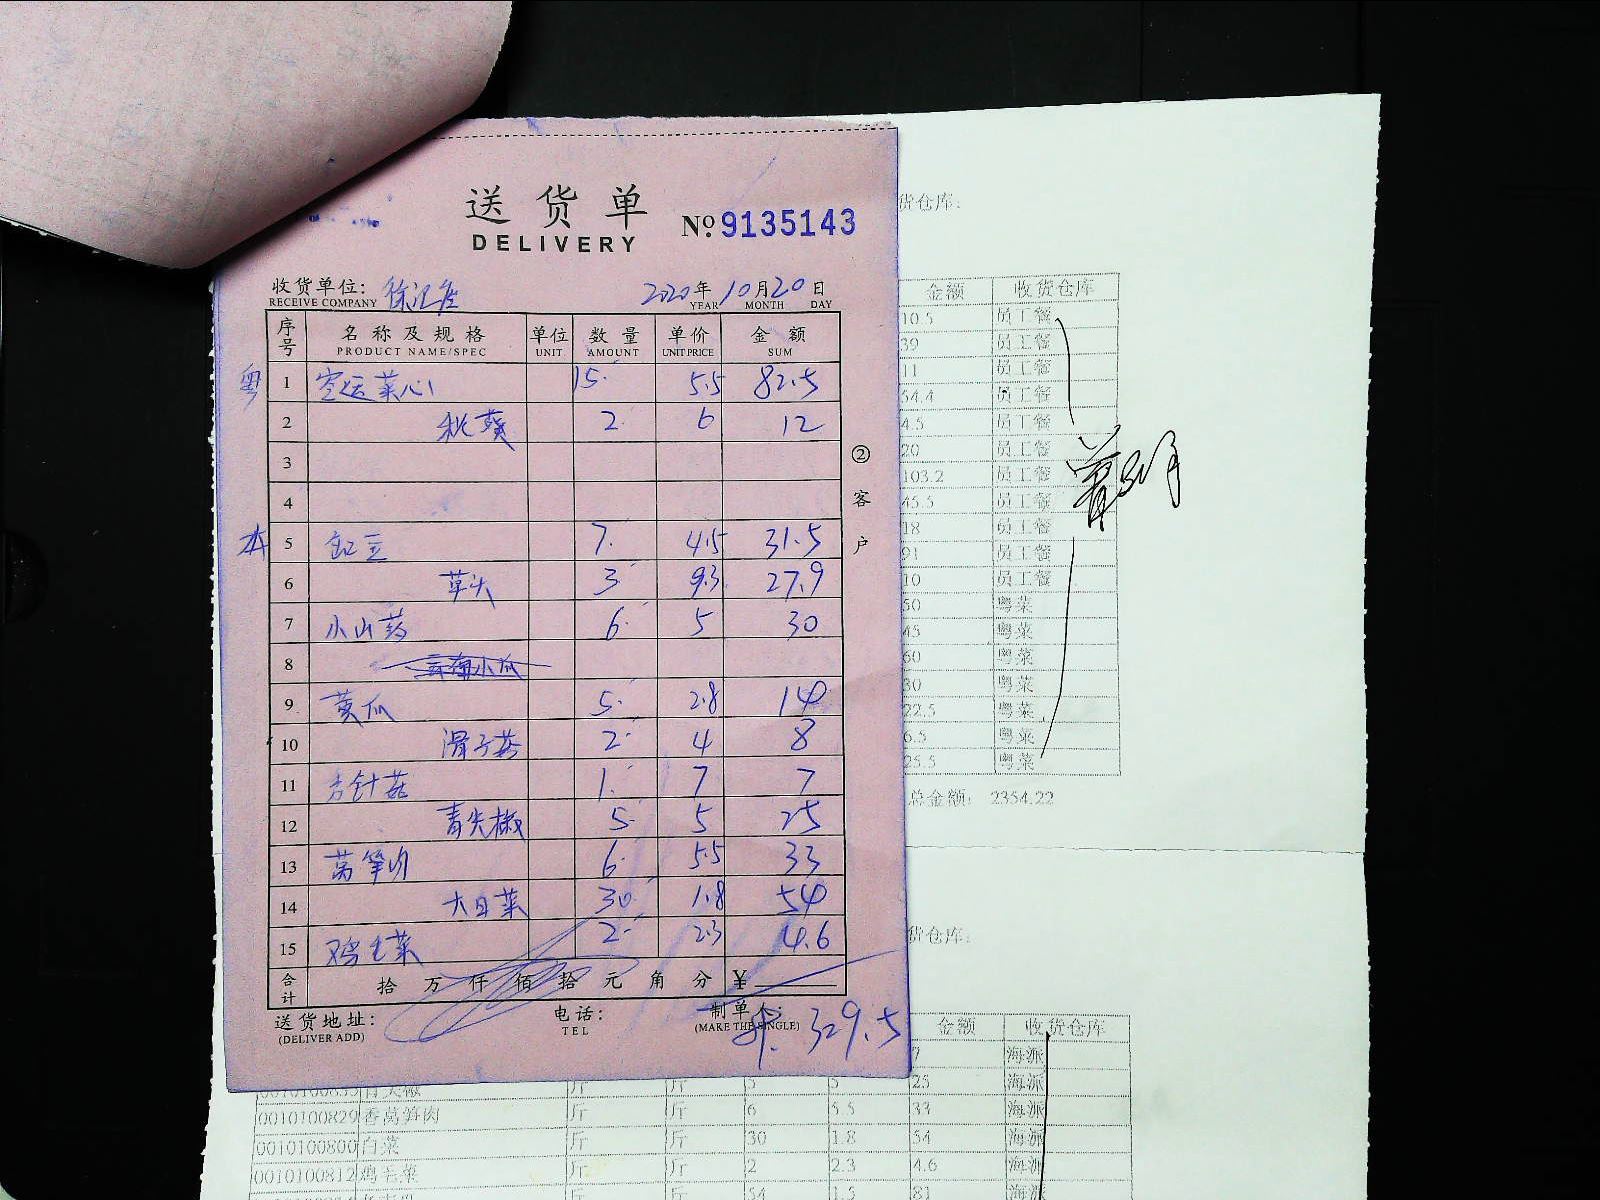 送货单
DELIVERY
№ 9135143
收货单位：
RECEIVE COMPANY
2020年10月20日
YEAR MONTH DAY
序号 名称及规格 单位 数量 单价 金额
PRODUCT NAME/SPEC UNIT AMOUNT UNIT PRICE SUM
粤 1 空运菜心 15 5.5 82.5
2 秋葵 2 6 12
3
4
本 5 豇豆 7 4.5 31.5
6 草头 3 9.3 27.9
7 小山药 6 5 30
8
9 黄瓜 5 2.8 14
10 滑子菇 2 4 8
11 金针菇 1 7 7
12 青尖椒 5 5 25
13 莴笋肉 6 5.5 33
14 大白菜 30 1.8 54
15 鸡毛菜 2 2.3 4.6
合计 拾 万 仟 佰 拾 元 角 分 ¥
送货地址：
(DELIVER ADD)
电话：
TEL
制单
(MAKE THE SINGLE)
329.5
②客户
货仓库：
金额 收货仓库
10.5 员工餐
39 员工餐
11 员工餐
54.4 员工餐
4.5 员工餐
20 员工餐
103.2 员工餐
45.5 员工餐
18 员工餐
91 员工餐
10 员工餐
50 粤菜
45 粤菜
60 粤菜
30 粤菜
22.5 粤菜
6.5 粤菜
25.5 粤菜
总金额： 2354.22
货仓库：
金额 收货仓库
7 海派
斤 斤 5 5 25 海派
0010100829 香莴笋肉 斤 斤 6 5.5 33 海派
0010100800 白菜 斤 斤 30 1.8 54 海派
0010100812 鸡毛菜 斤 斤 2 2.3 4.6 海派
斤 斤 54 1.5 81 海派